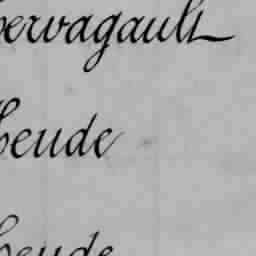 hervagault
heude
heude